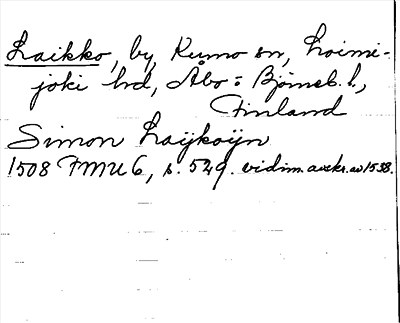 Laikko, by, Kumo sn, Loimi-
joki hd, Åbo = Björneb. l.,
Finland
Simon Laijkoijn
1508 FMU 6, s. 549. vidim. avskr. av 1538.